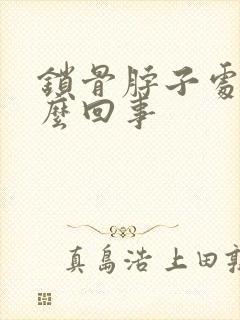 鎖骨脖子處
麼回事
真島浩 上田敦